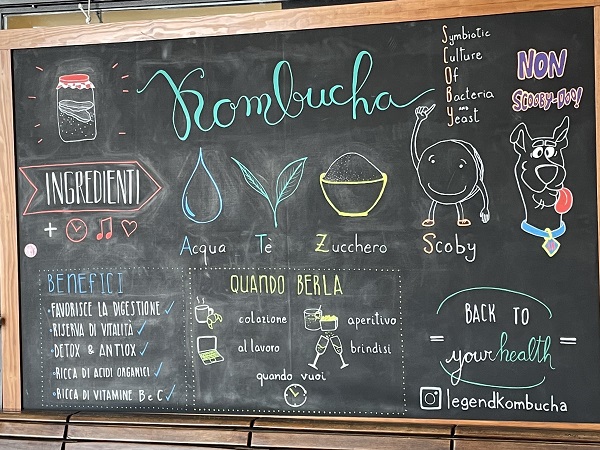 Kombucha
Symbiotic
Culture
Of
Bacteria
AND
Yeast
NON
SCOOBY-DOO!
INGREDIENTI
+
Acqua
Tè
Zucchero
Scoby
BENEFICI
• FAVORISCE LA DIGESTIONE ✓
• RISERVA DI VITALITÀ ✓
• DETOX & ANTIOX ✓
• RICCA DI ACIDI ORGANICI ✓
• RICCA DI VITAMINE B e C ✓
QUANDO BERLA
colazione
aperitivo
al lavoro
brindisi
quando vuoi
BACK TO
= your health =
legendkombucha